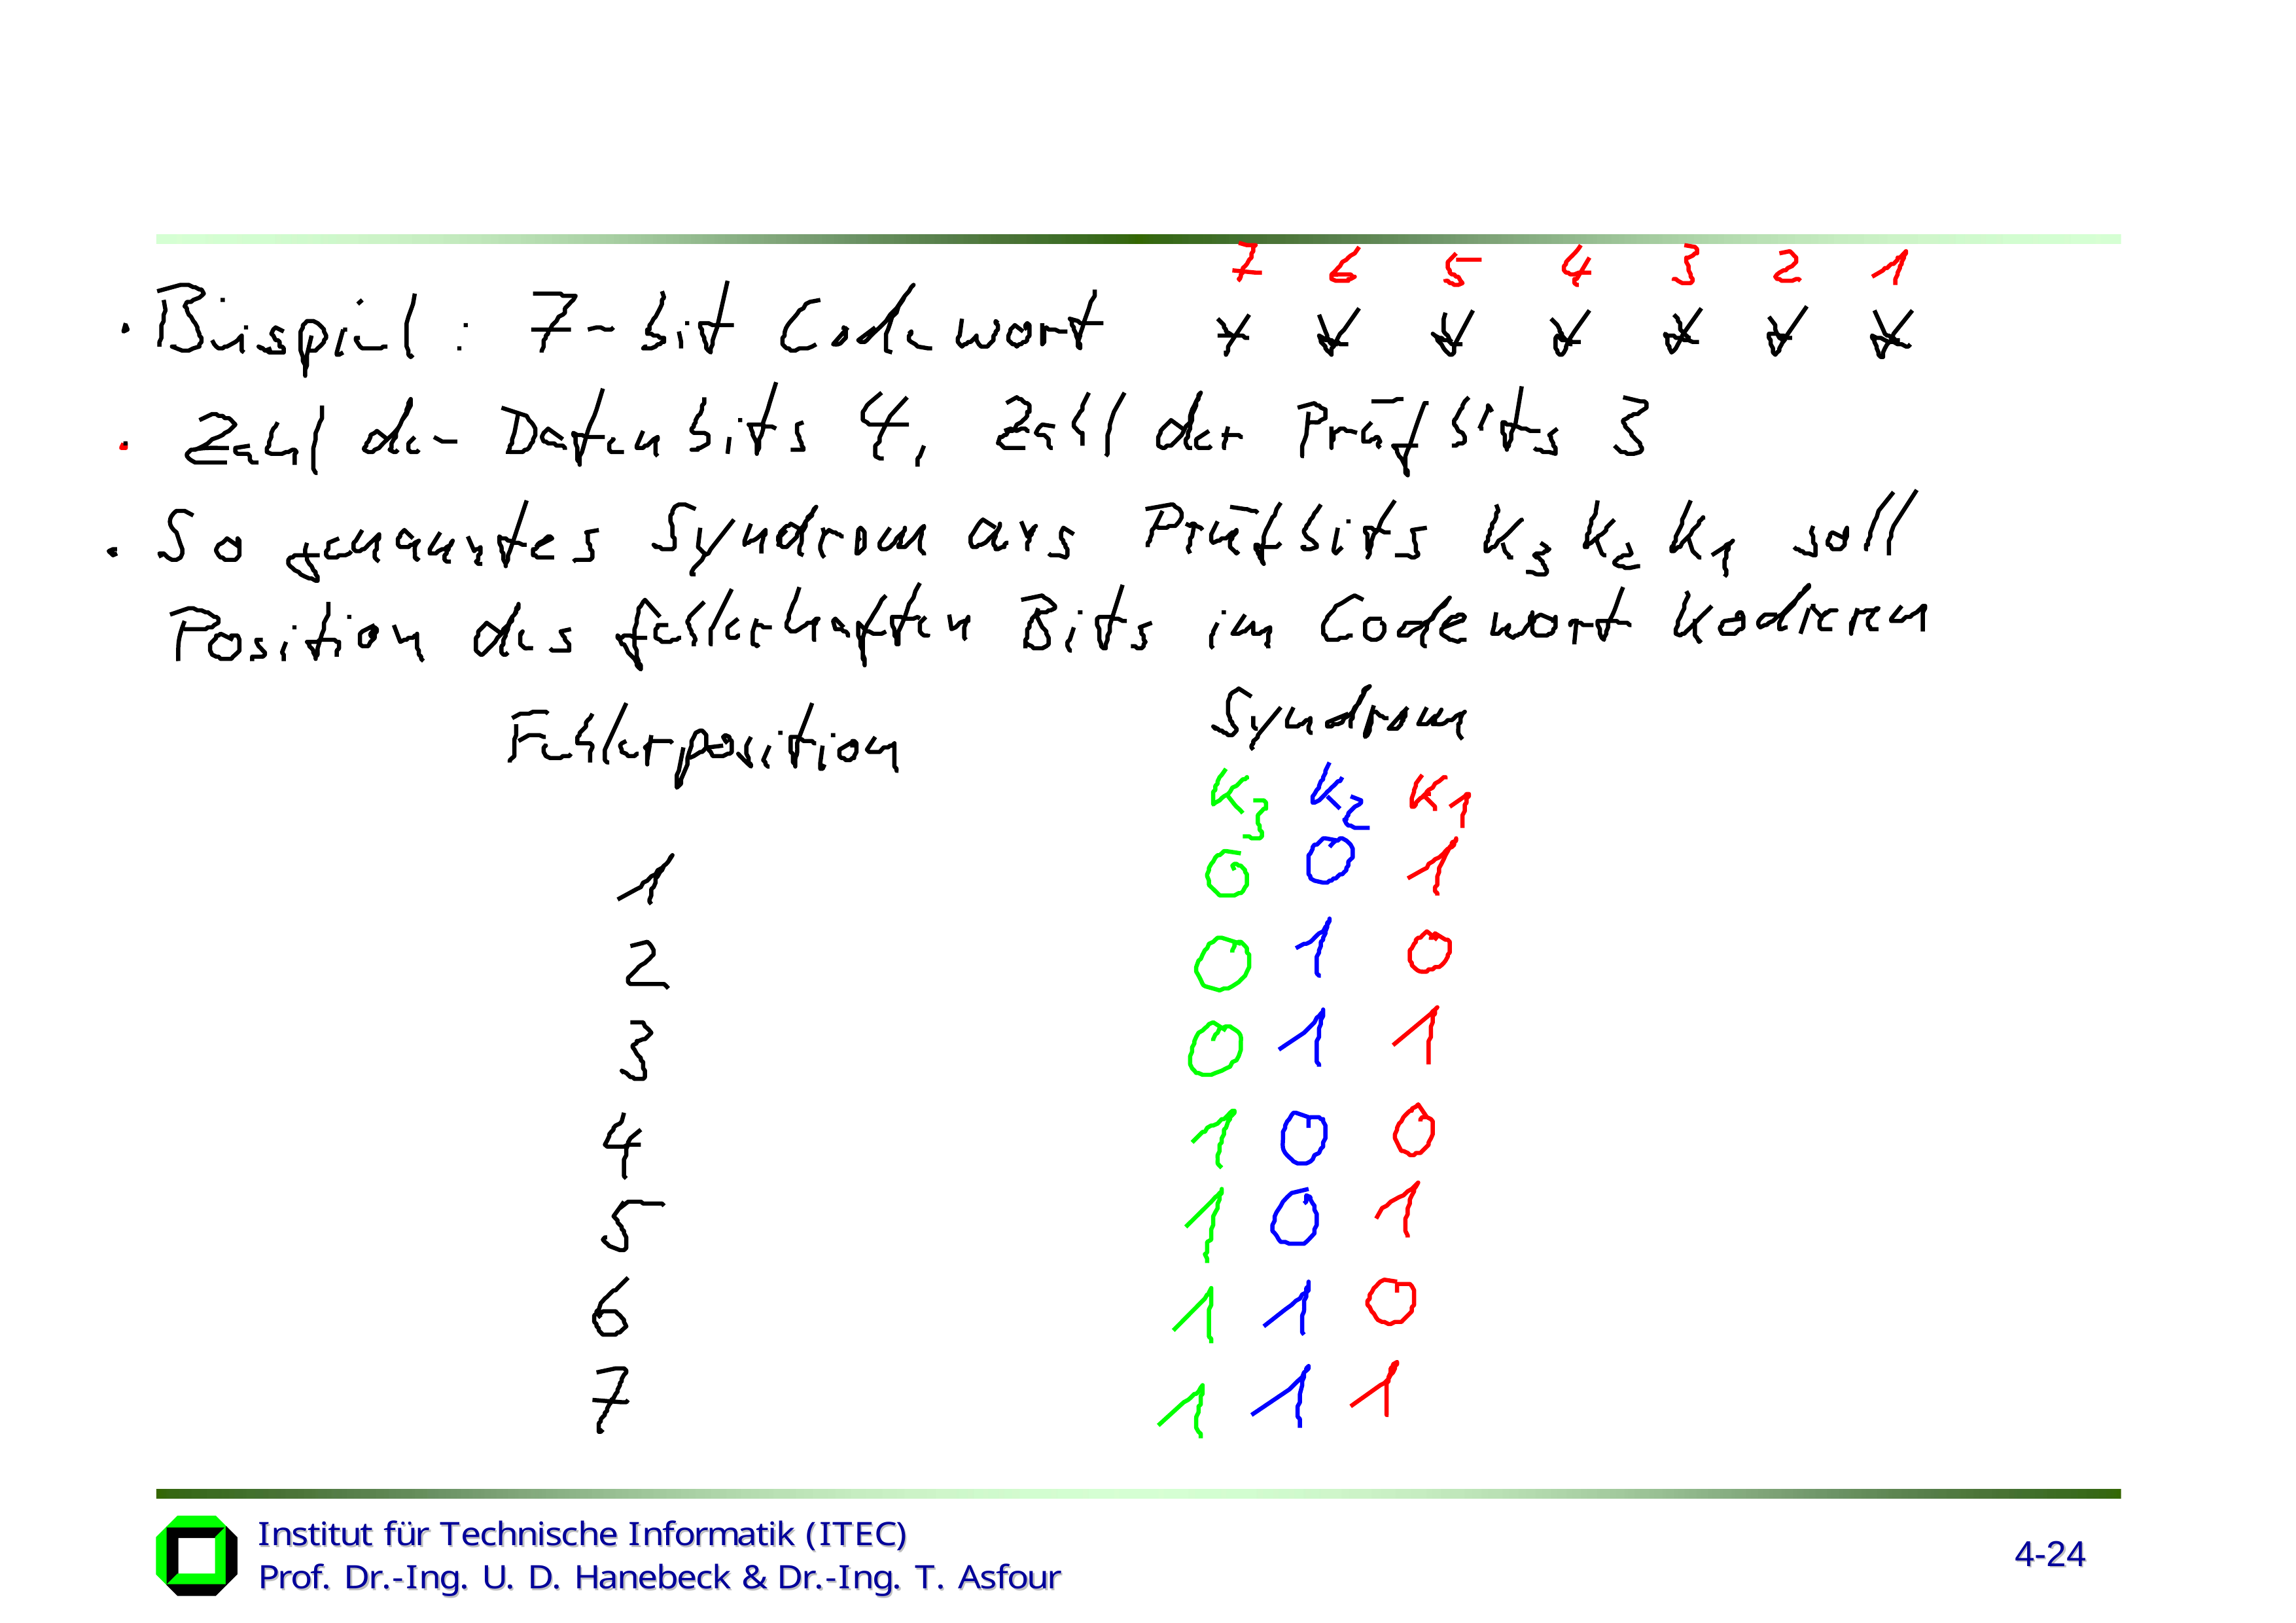 7 6 5 4 3 2 1
• Beispiel : 7-bit Codewort x x x x x x x
• Zahl der Datenbits 4, Zahl der Prüfbits 3
• Sogenanntes Syndrom aus Prüfbits K3 K2 K1 soll
Position des fehlerhaften Bits im Codewort kodieren
Fehlerposition Syndrom
K3 K2 K1
1 0 0 1
2 0 1 0
3 0 1 1
4 1 0 0
5 1 0 1
6 1 1 0
7 1 1 1
Institut für Technische Informatik (ITEC)
Prof. Dr.-Ing. U. D. Hanebeck & Dr.-Ing. T. Asfour
4-24